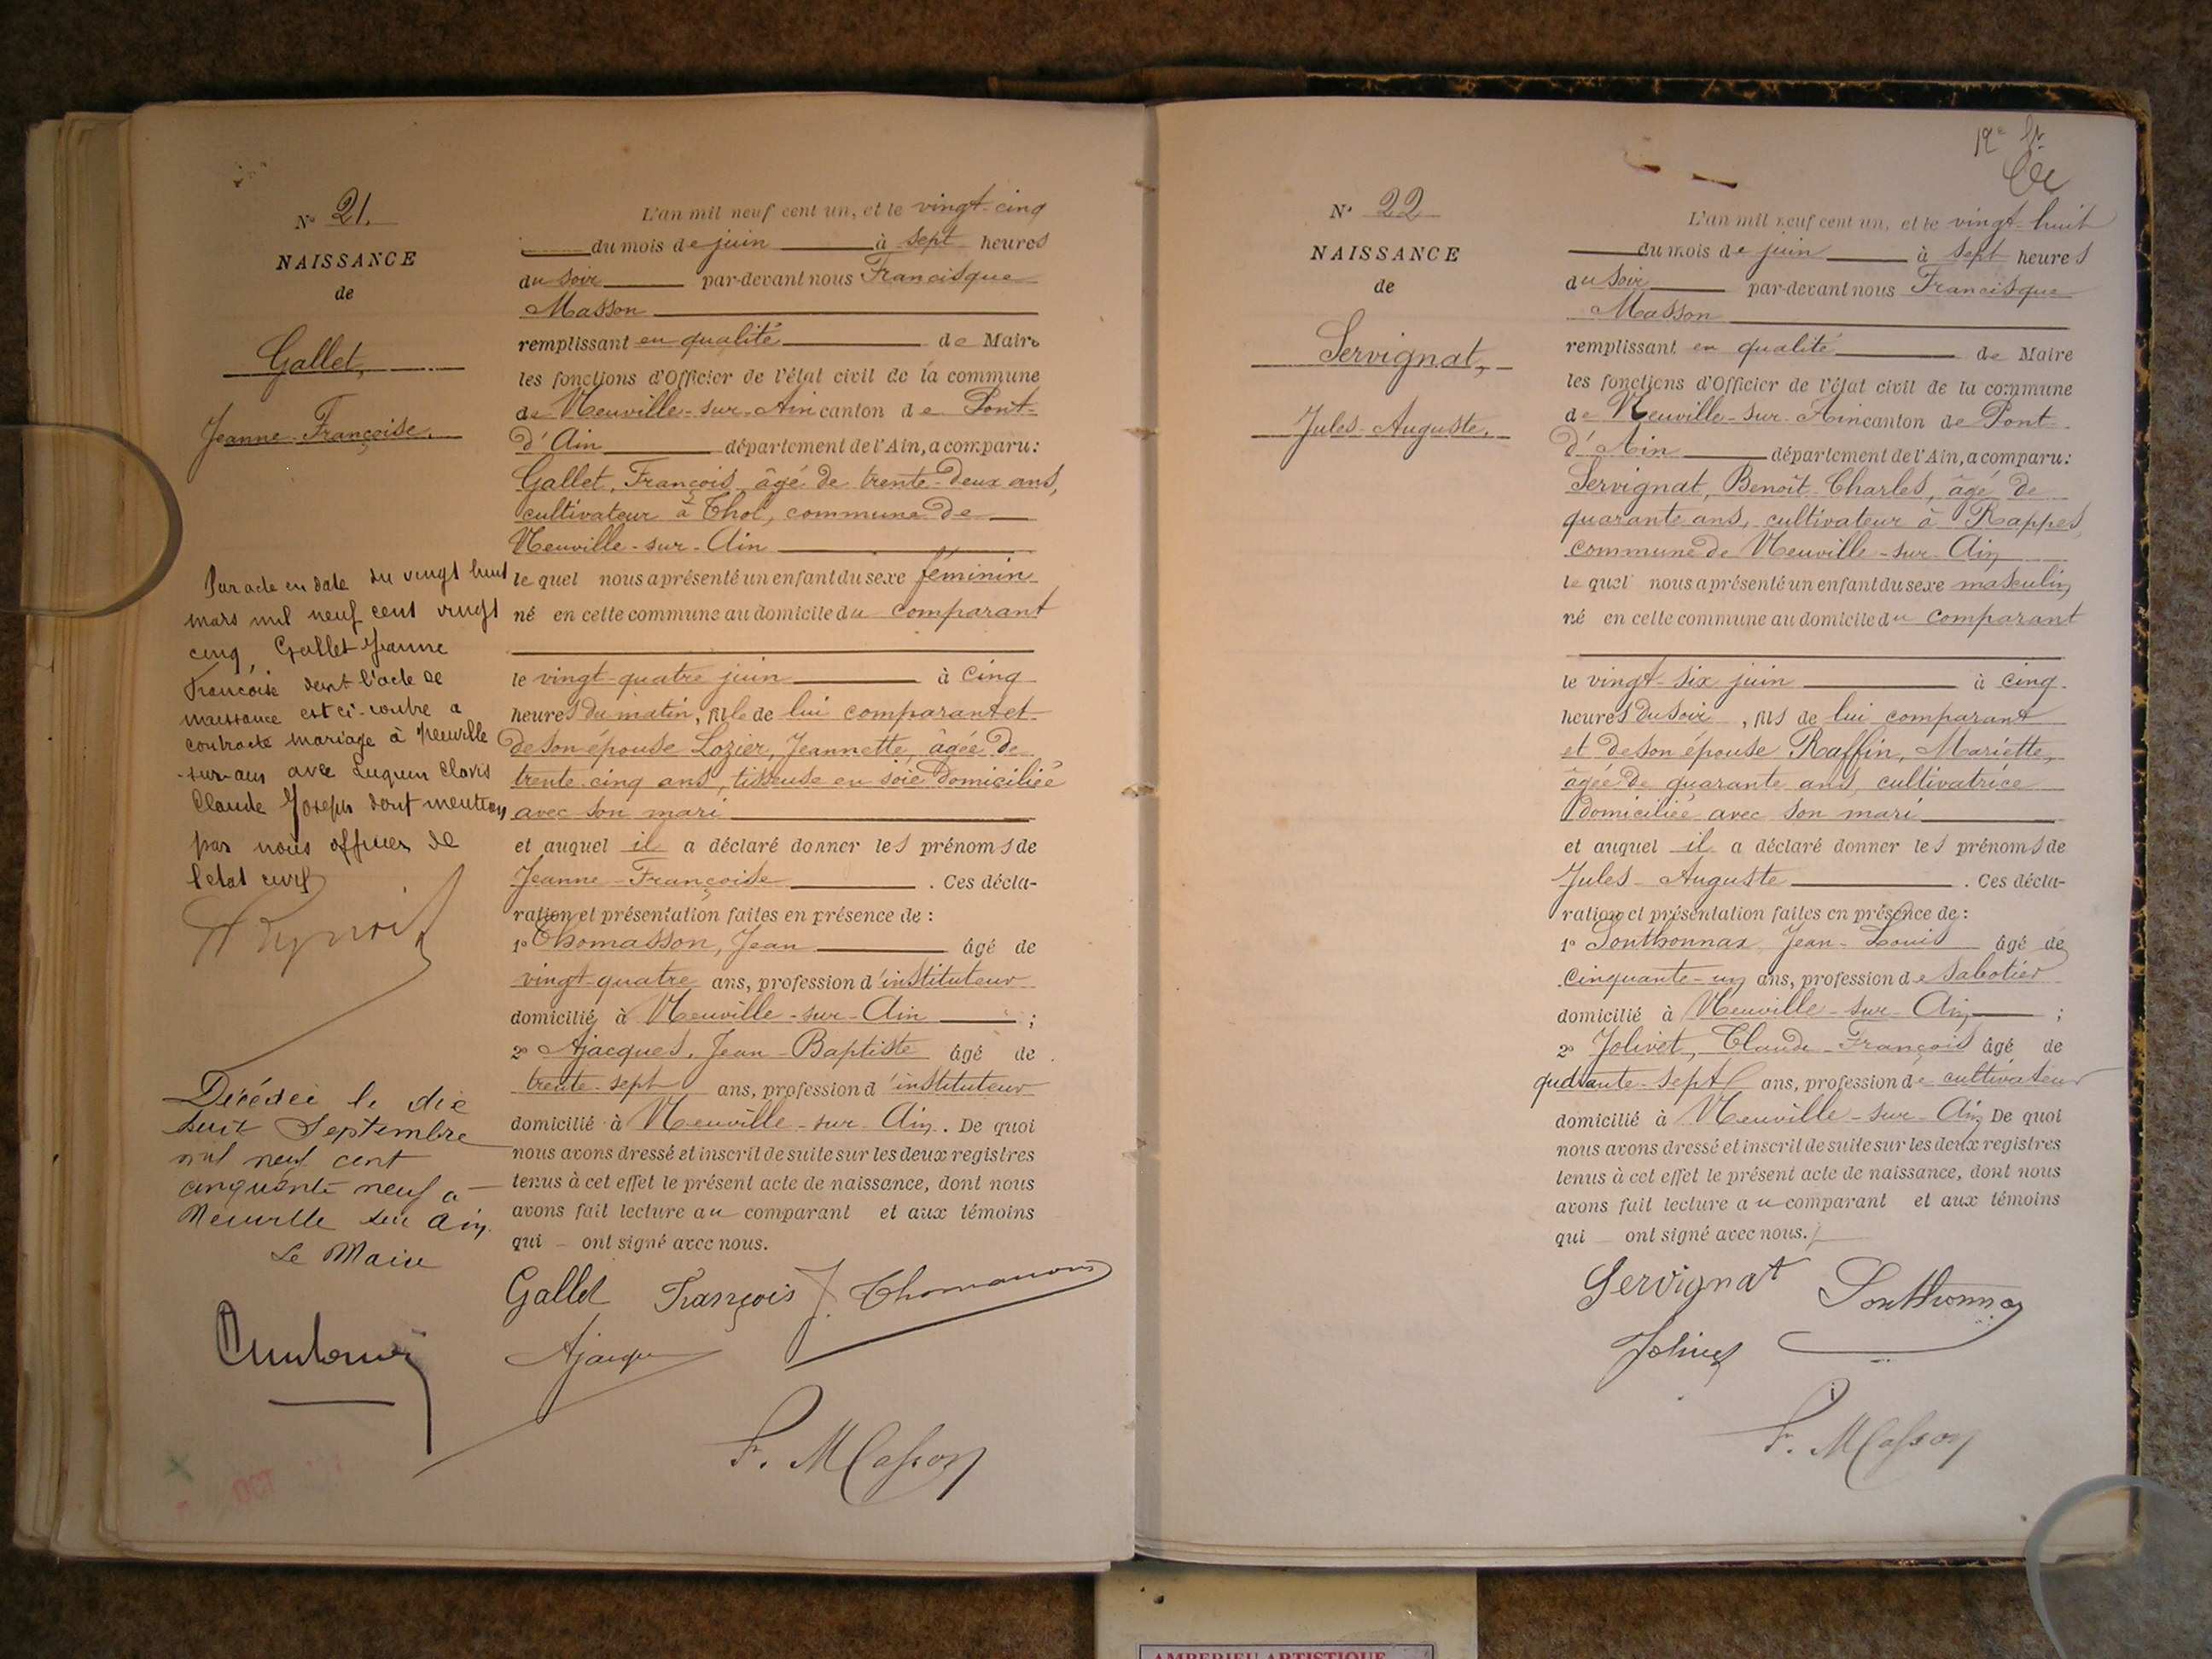 N° 21.
NAISSANCE
de
Gallet,
Jeanne-Françoise.
Par acte en date du vingt huit
mars mil neuf cent vingt
cinq, Gallet Jeanne
Françoise dont l'acte de
naissance est ci-contre a
contracté mariage à Neuville
-sur-ain avec Luquin Clovis
Claude Joseph dont mention
par nous officier de
l'etat civil
Décédée le dix
huit Septembre
mil neuf cent
cinquante neuf a
Neuville sur Ain
Le Maire
OCT
L'an mil neuf cent un, et le vingt-cinq
du mois de juin à sept heures
du soir par-devant nous Francisque
Masson
remplissant en qualité de Maire
les fonctions d'Officier de l'état civil de la commune
de Neuville-sur-Ain canton de Pont-
d'Ain département de l'Ain, a comparu:
Gallet, François, âgé de trente-deux ans,
cultivateur à Thol, commune de
Neuville-sur-Ain
lequel nous a présenté un enfant du sexe féminin
né en cette commune au domicile du comparant
le vingt-quatre juin à cinq
heures du matin, fille de lui comparant et
de son épouse Lozier, Jeannette, âgée de
trente cinq ans, tisseuse en soie domiciliée
avec son mari
et auquel il a déclaré donner les prénoms de
Jeanne-Françoise . Ces décla-
ration et présentation faites en présence de :
1° Thomasson, Jean âgé de
vingt-quatre ans, profession d'instituteur
domicilié à Neuville-sur-Ain ;
2° Ajacques, Jean-Baptiste âgé de
trente-sept ans, profession d'instituteur
domicilié à Neuville-sur-Ain. De quoi
nous avons dressé et inscrit de suite sur les deux registres
tenus à cet effet le présent acte de naissance, dont nous
avons fait lecture au comparant et aux témoins
qui ont signé avec nous.
Gallet François J. Thomasson
Ajacques
F. Masson
N° 22
NAISSANCE
de
Servignat,
Jules-Auguste.
L'an mil neuf cent un, et le vingt-huit
du mois de juin à sept heures
du soir par-devant nous Francisque
Masson
remplissant en qualité de Maire
les fonctions d'Officier de l'état civil de la commune
de Neuville-sur-Ain canton de Pont-
d'Ain département de l'Ain, a comparu:
Servignat, Benoît-Charles, âgé de
quarante ans, cultivateur à Rappes,
commune de Neuville-sur-Ain
lequel nous a présenté un enfant du sexe masculin
né en cette commune au domicile du comparant
le vingt-six juin à cinq
heures du soir, fils de lui comparant
et de son épouse Raffin, Mariette,
âgée de quarante ans, cultivatrice
domiciliée avec son mari
et auquel il a déclaré donner les prénoms de
Jules-Auguste . Ces décla-
ration et présentation faites en présence de :
1° Sonthonnax Jean-Louis âgé de
cinquante-un ans, profession de sabotier
domicilié à Neuville-sur-Ain ;
2° Jolivet, Claude-François âgé de
quarante-sept ans, profession de cultivateur
domicilié à Neuville-sur-Ain De quoi
nous avons dressé et inscrit de suite sur les deux registres
tenus à cet effet le présent acte de naissance, dont nous
avons fait lecture au comparant et aux témoins
qui ont signé avec nous.
Servignat Sonthonnax
Jolivet
F. Masson
AMBERIEU ARTISTIQUE